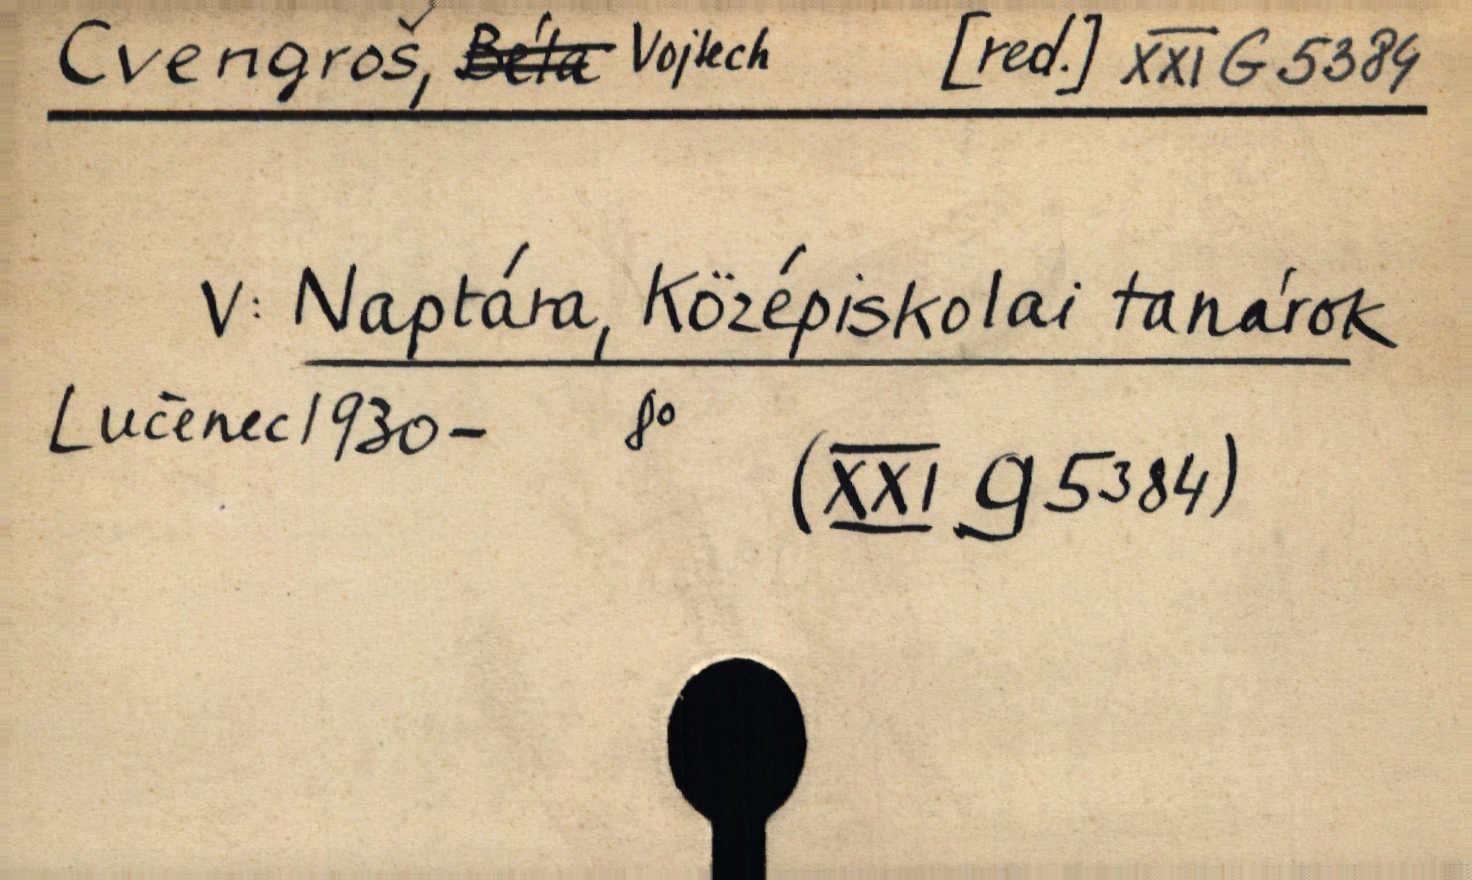 Cvengroš, Béla Vojtech [red.] XXI G 5384
V: Naptára, Középiskolai tanárok
Lučenec 1930– 8°
(XXI g 5384)